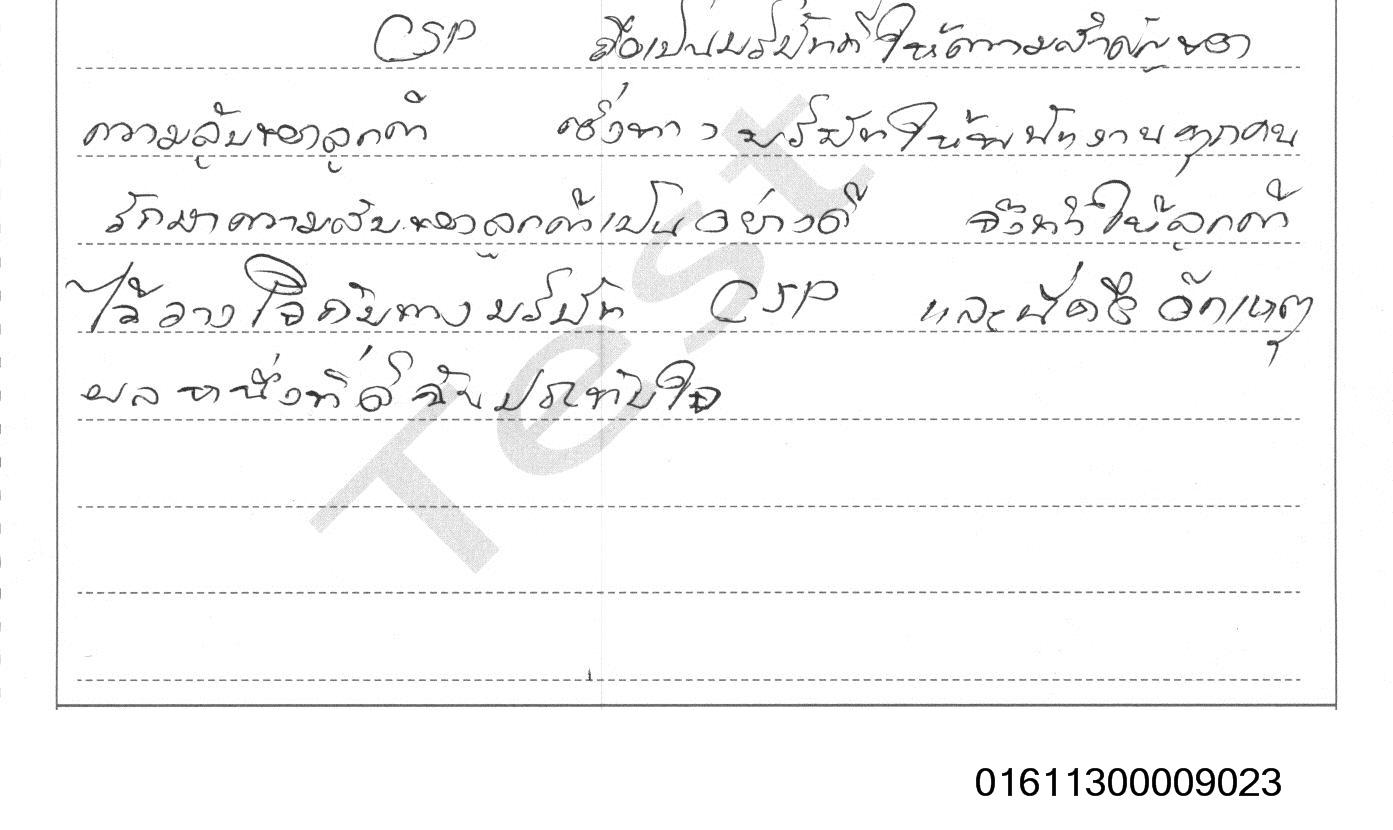 CSP ถือเป็นบริษัทที่ให้ความสำคัญของ
ความลับของลูกค้า ซึ่งทางบริษัทให้พนักงานทุกคน
รักษาความลับของลูกค้าเป็นอย่างดี จึงทำให้ลูกค้า
ไว้วางใจกับทางบริษัท CSP และนี่คืออีกเหตุ
ผลหนึ่งที่ดิฉันประทับใจ
Test
01611300009023